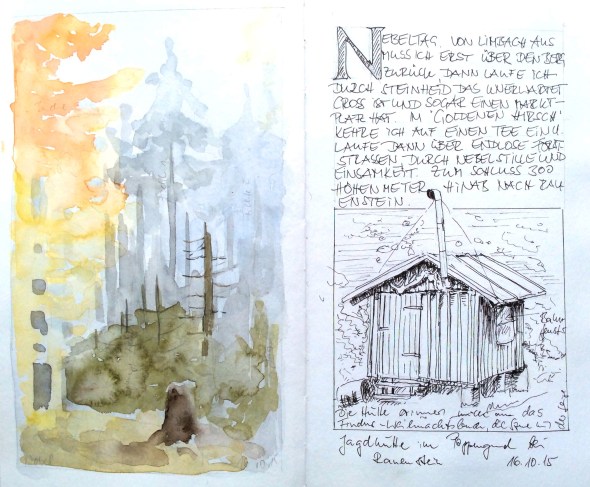 NEBELTAG. VON LIMBACH AUS
MUSS ICH ERST ÜBER DEN BERG
ZURÜCK, DANN LAUFE ICH
DURCH STEINHEID DAS UNERWARTET
GROSS IST UND SOGAR EINEN MARKT-
PLATZ HAT. IM "GOLDENEN HIRSCH"
KEHRE ICH AUF EINEN TEE EIN U.
LAUFE DANN ÜBER ENDLOSE FORST
STRASSEN DURCH NEBELSTILLE UND
EINSAMKEIT. ZUM SCHLUSS 300
HÖHENMETER HINAB NACH RAU
ENSTEIN.
Die Hütte erinnert mich an das
Jagdhütte im Poppengrund bei
Rauenstein 16.10.15